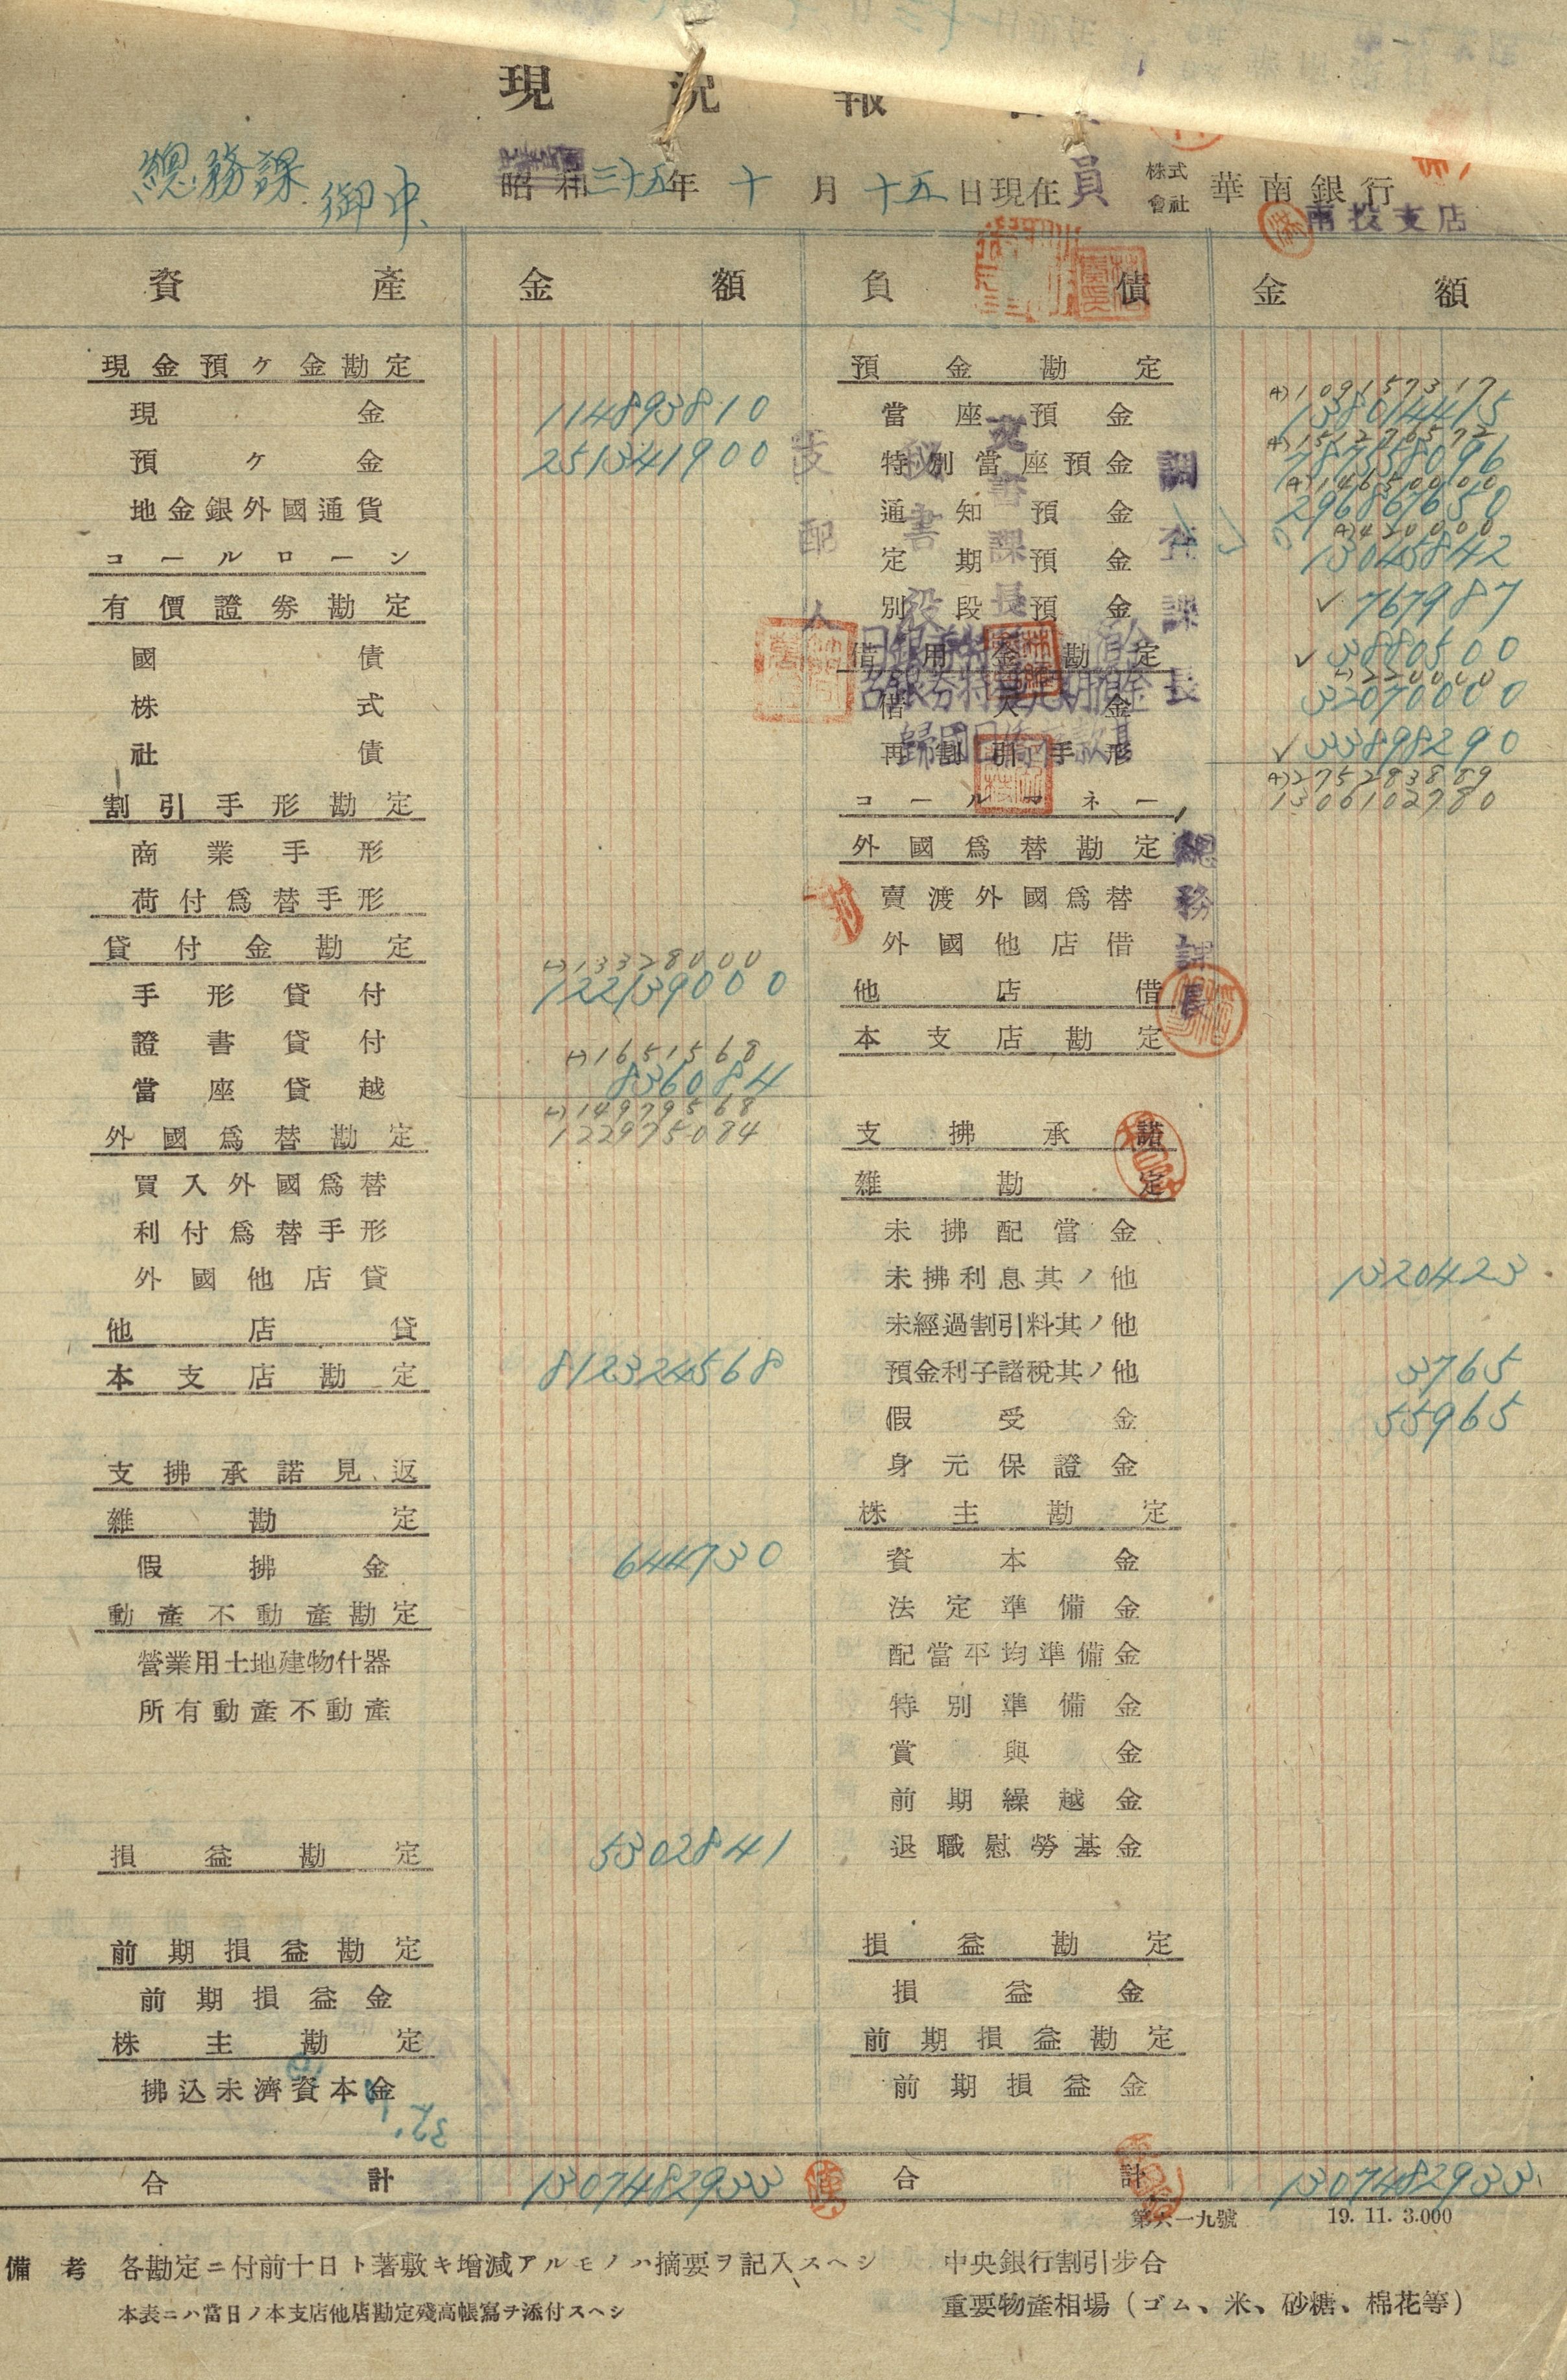 現況報
總務課 御中
昭和三十五年十月十五日現在 員 株式會社 華南銀行
南投支店
資產 金額 負債 金額
現金預ケ金勘定 預金勘定
(+)109157317
現金 114893810 當座預金 138014415
(+)152276572
預ケ金 251341900 特別當座預金 787358096
(+)14650000
地金銀外國通貨 通知預金 296867650
(+)420000
コールローン 定期預金 13045842
有價證券勘定 別段預金 767987
國債 借用金勘定 3880500
(-)220000
株式 借入金 32070000
社債 再割引手形 33898290
(+)275283889
割引手形勘定 コールマネー 1306102780
商業手形 外國爲替勘定
荷付爲替手形 賣渡外國爲替
貸付金勘定 外國他店借
(-)13328000
手形貸付 122139000 他店借
證書貸付 本支店勘定
(-)1651568
當座貸越 836084
(-)14979568
外國爲替勘定 122975084 支拂承諾
買入外國爲替 雜勘定
利付爲替手形 未拂配當金
外國他店貸 未拂利息其ノ他 1320423
他店貸 未經過割引料其ノ他
本支店勘定 812324568 預金利子諸稅其ノ他 3765
假受金 55965
支拂承諾見返 身元保證金
雜勘定 株主勘定
假拂金 644730 資本金
動產不動產勘定 法定準備金
營業用土地建物什器 配當平均準備金
所有動產不動產 特別準備金
賞與金
前期繰越金
損益勘定 5302841 退職慰勞基金
前期損益勘定 損益勘定
前期損益金 損益金
株主勘定 前期損益勘定
拂込未濟資本金 前期損益金
合計 1307482933 合計 1307482933
第六一九號 19. 11. 3.000
備考 各勘定ニ付前十日ト著敷キ增減アルモノハ摘要ヲ記入スヘシ 中央銀行割引步合
本表ニハ當日ノ本支店他店勘定殘高帳寫チ添付スヘシ 重要物產相場（ゴム、米、砂糖、棉花等）
支配人
秘書役
文書課長
調查課長
總務課長